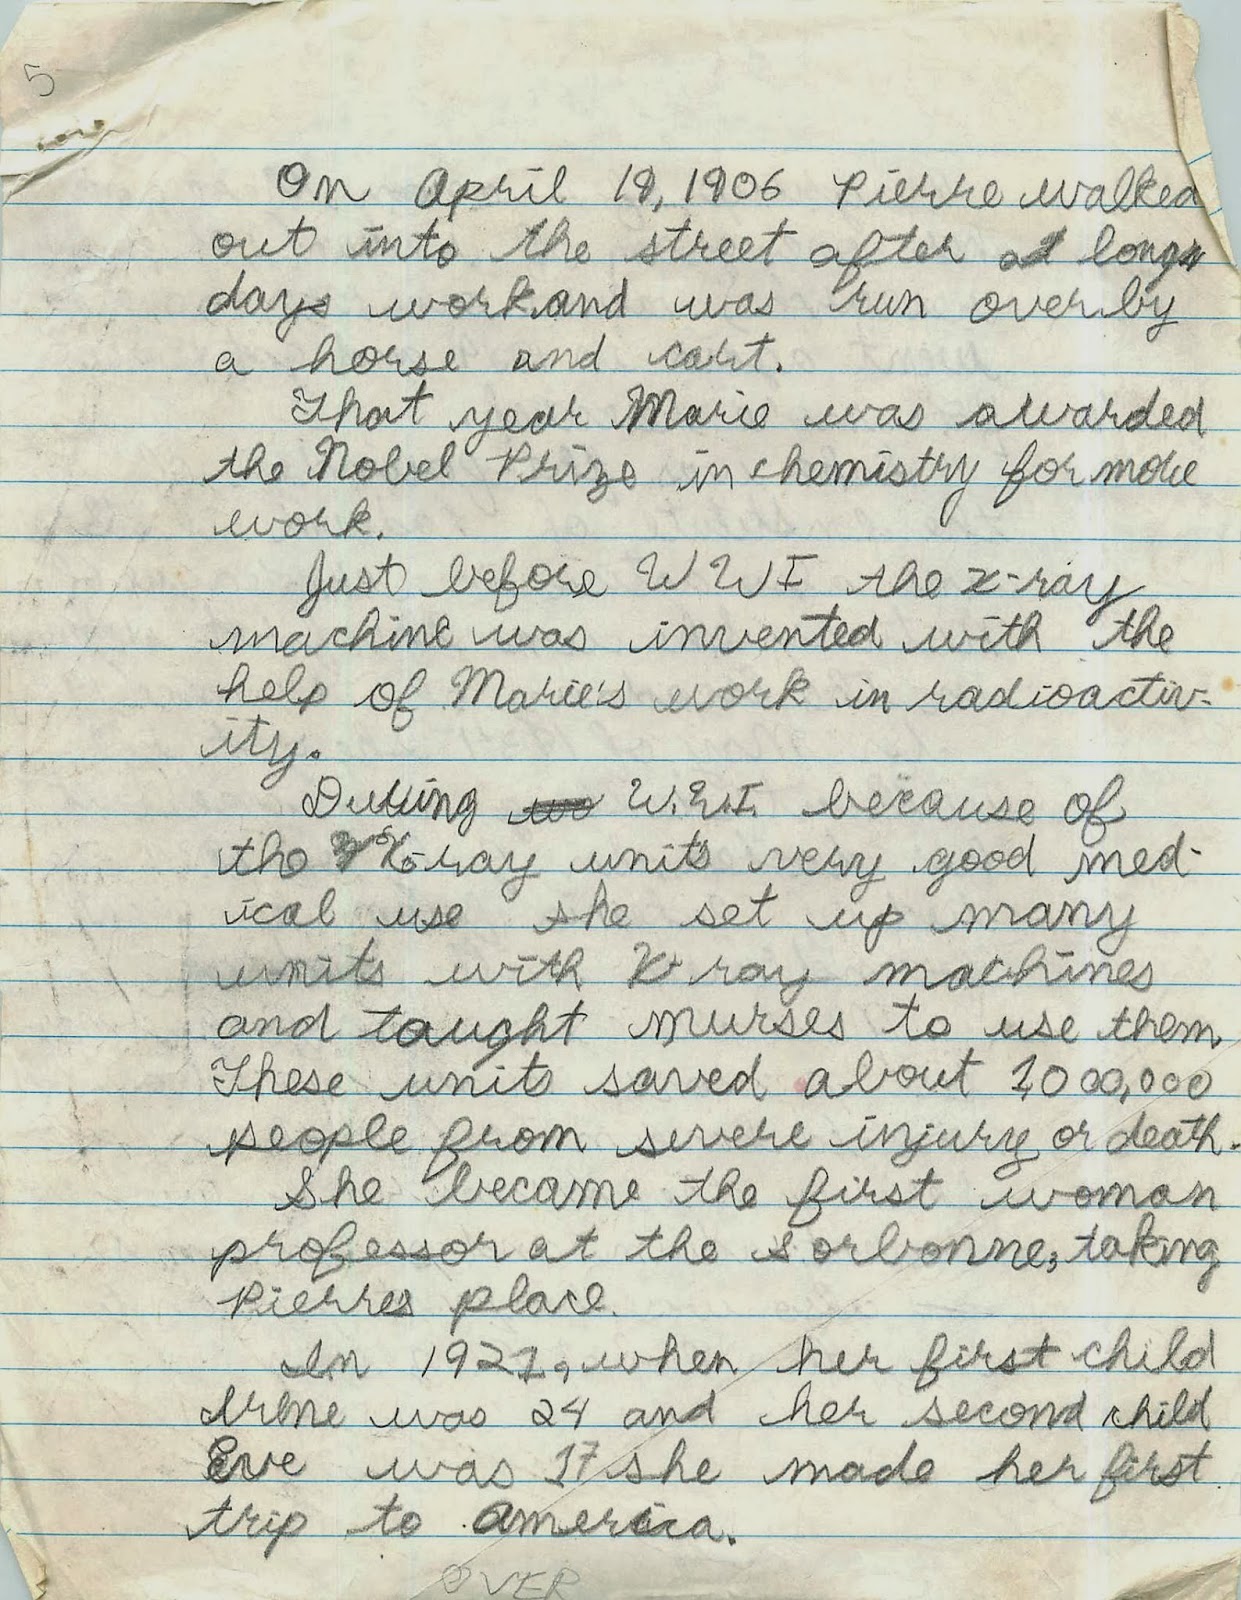 5
On April 19, 1906 Pierre walked
out into the street after a long
days work and was run over by
a horse and cart.
That year Marie was awarded
the Nobel Prize in chemistry for more
work.
Just before WWI the x-ray
machine was invented with the
help of Marie's work in radioactiv-
ity.
During W.W.I. because of
the X-ray units very good med-
ical use she set up many
units with X-ray machines
and taught nurses to use them.
These units saved about 1000,000
people from severe injury or death.
She became the first woman
professor at the Sorbonne, taking
Pierres place.
In 1921, when her first child
Irene was 24 and her second child
Eve was 17 she made her first
trip to America.
OVER